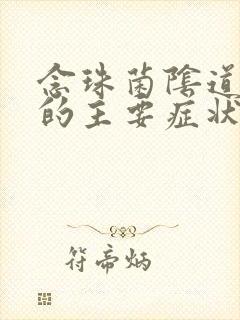 念珠菌陰道
的主要症狀
符帝炳